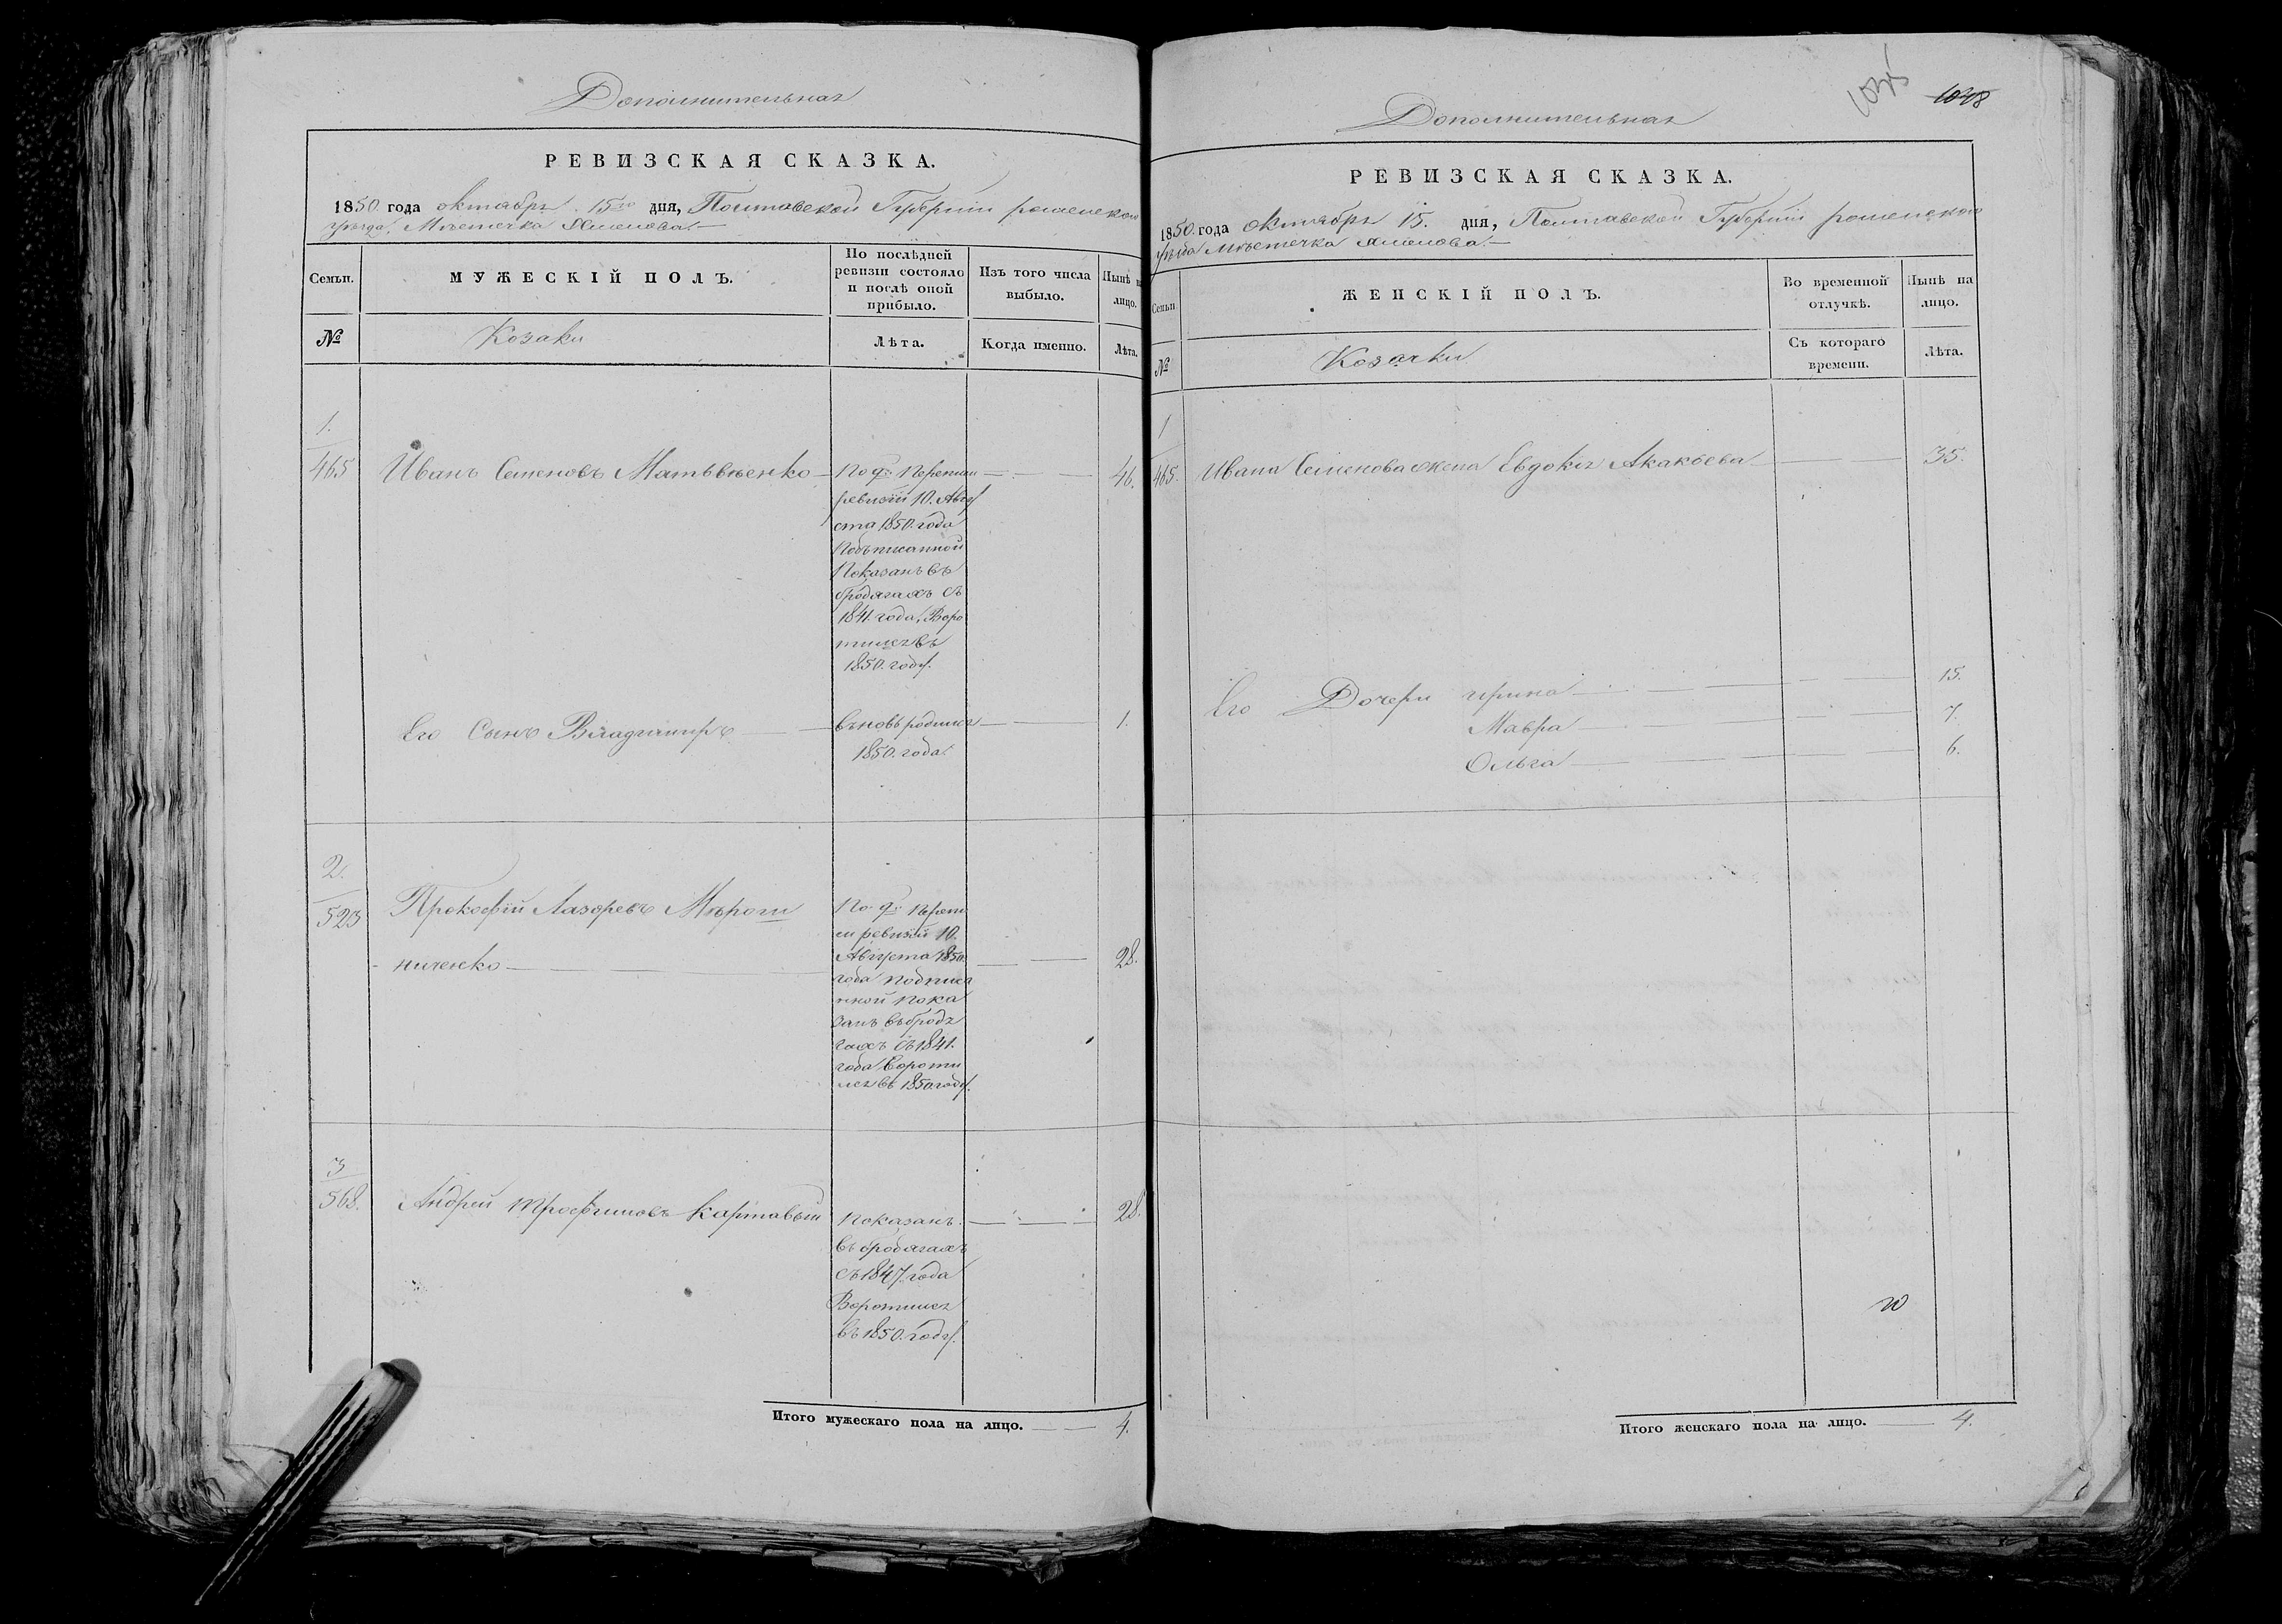 Дополнительная
РЕВИЗСКАЯ СКАЗКА.
1850 года октября 15го дня, Полтавской Губернии роменского
уѣзда, Мѣстечка Хмелова.
Семьи.
МУЖЕСКІЙ ПОЛЪ.
По послѣдней ревизіи состояло и послѣ оной прибыло.
Изъ того числа выбыло.
Нынѣ на лицо.
№
Козаки
Лѣта.
Когда именно.
Лѣта.
1.
465
Иванъ Семеновъ Матвѣенко
По
ревизіи 10. Авгу
ста 1850. года
Подъписанной
Показанъ въ
бродягахъ съ
1841. года, Воро
тился въ
1850. году.
46.
Его Сынъ Владимиръ
вновь родился
1850. года.
1.
2.
523
Прокофій Лазоревъ Мѣрош
ниченко
По
ревизіи 10.
Августа 1850.
года подписа
нной пока
занъ въ бродя
гахъ съ 1841.
года Вороти
лся въ 1850 году.
28.
3
568.
Андрей Трофимовъ Картавый
Показанъ
въ бродягахъ
съ 1847. года
Воротился
въ 1850. году.
28.
Итого мужескаго пола на лицо. 4.
1048
Дополнительная
РЕВИЗСКАЯ СКАЗКА.
1850. года октября 15. дня, Полтавской Губерніи роменского
уѣзда Мѣстечка Хмелова.
Семьи
ЖЕНСКІЙ ПОЛЪ.
Во временной отлучкѣ.
Нынѣ на лицо.
№
Козачки
Съ котораго времени.
Лѣта.
1
465.
Ивана Семенова жена Евдокія Акакіева 35.
Его Дочери Ирина 15.
Мавра 7.
Ольга 6.
Итого женскаго пола на лицо. 4.